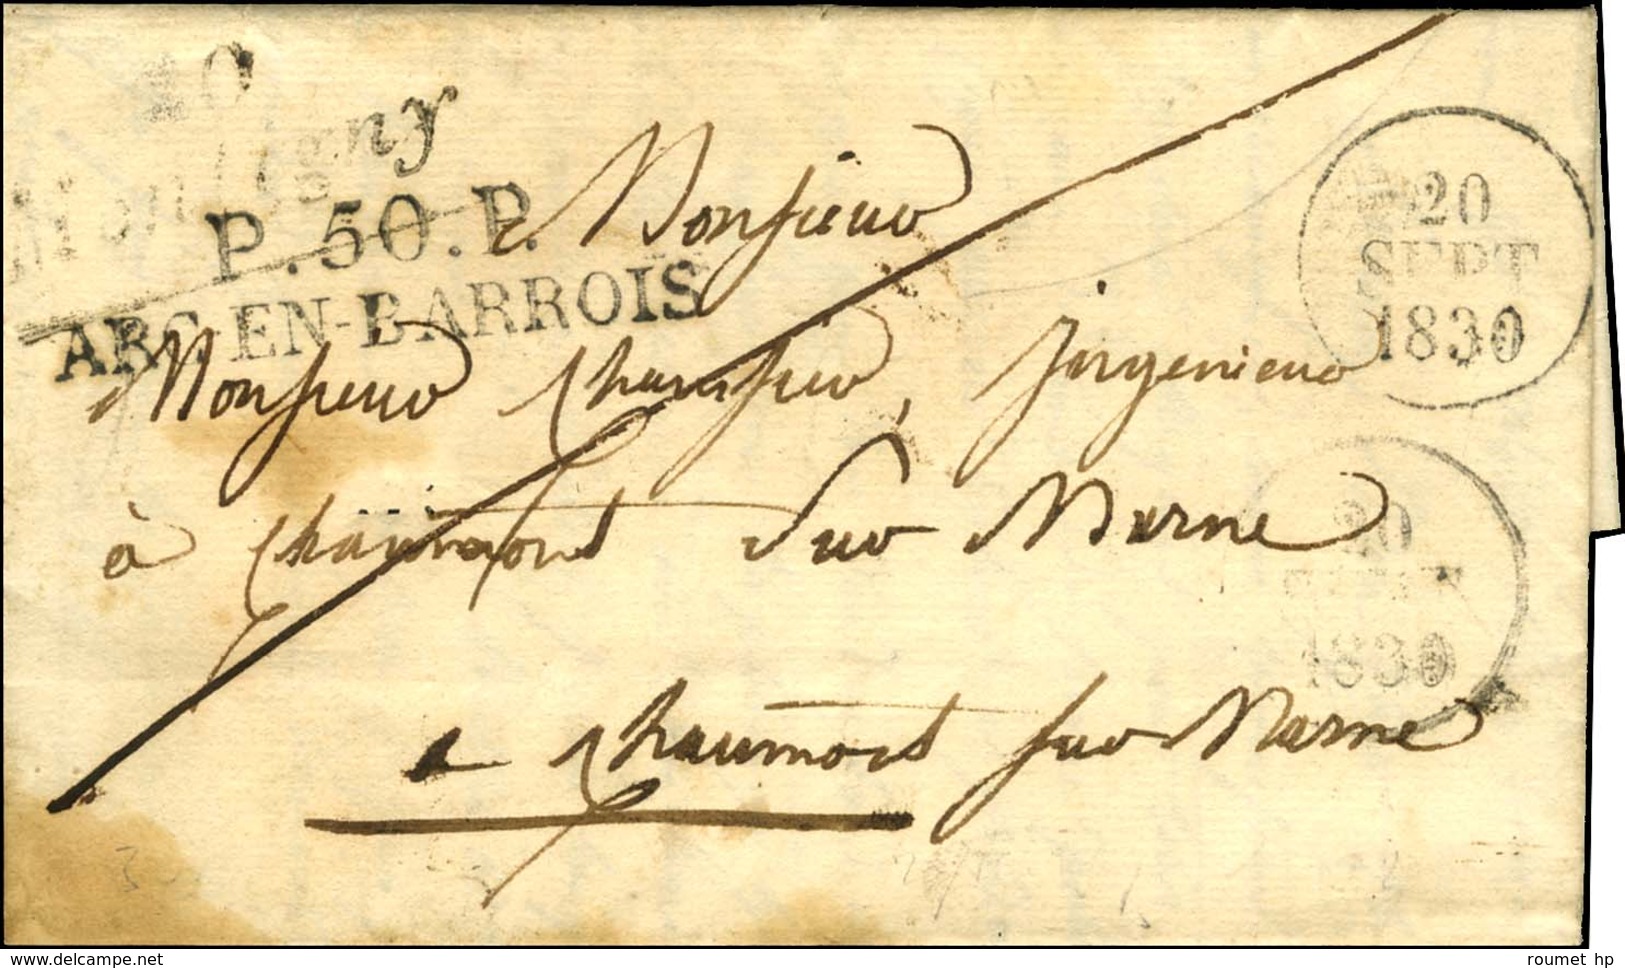 Montigny
P. 50. P.
ARC-EN-BARROIS
20
SEPT
1830
Monsieur
Monsieur ingenieur
à chaumont Sur Marne
20
SEPT
1830
a chaumont sur Marne
www.delcampe.net
roumet hp